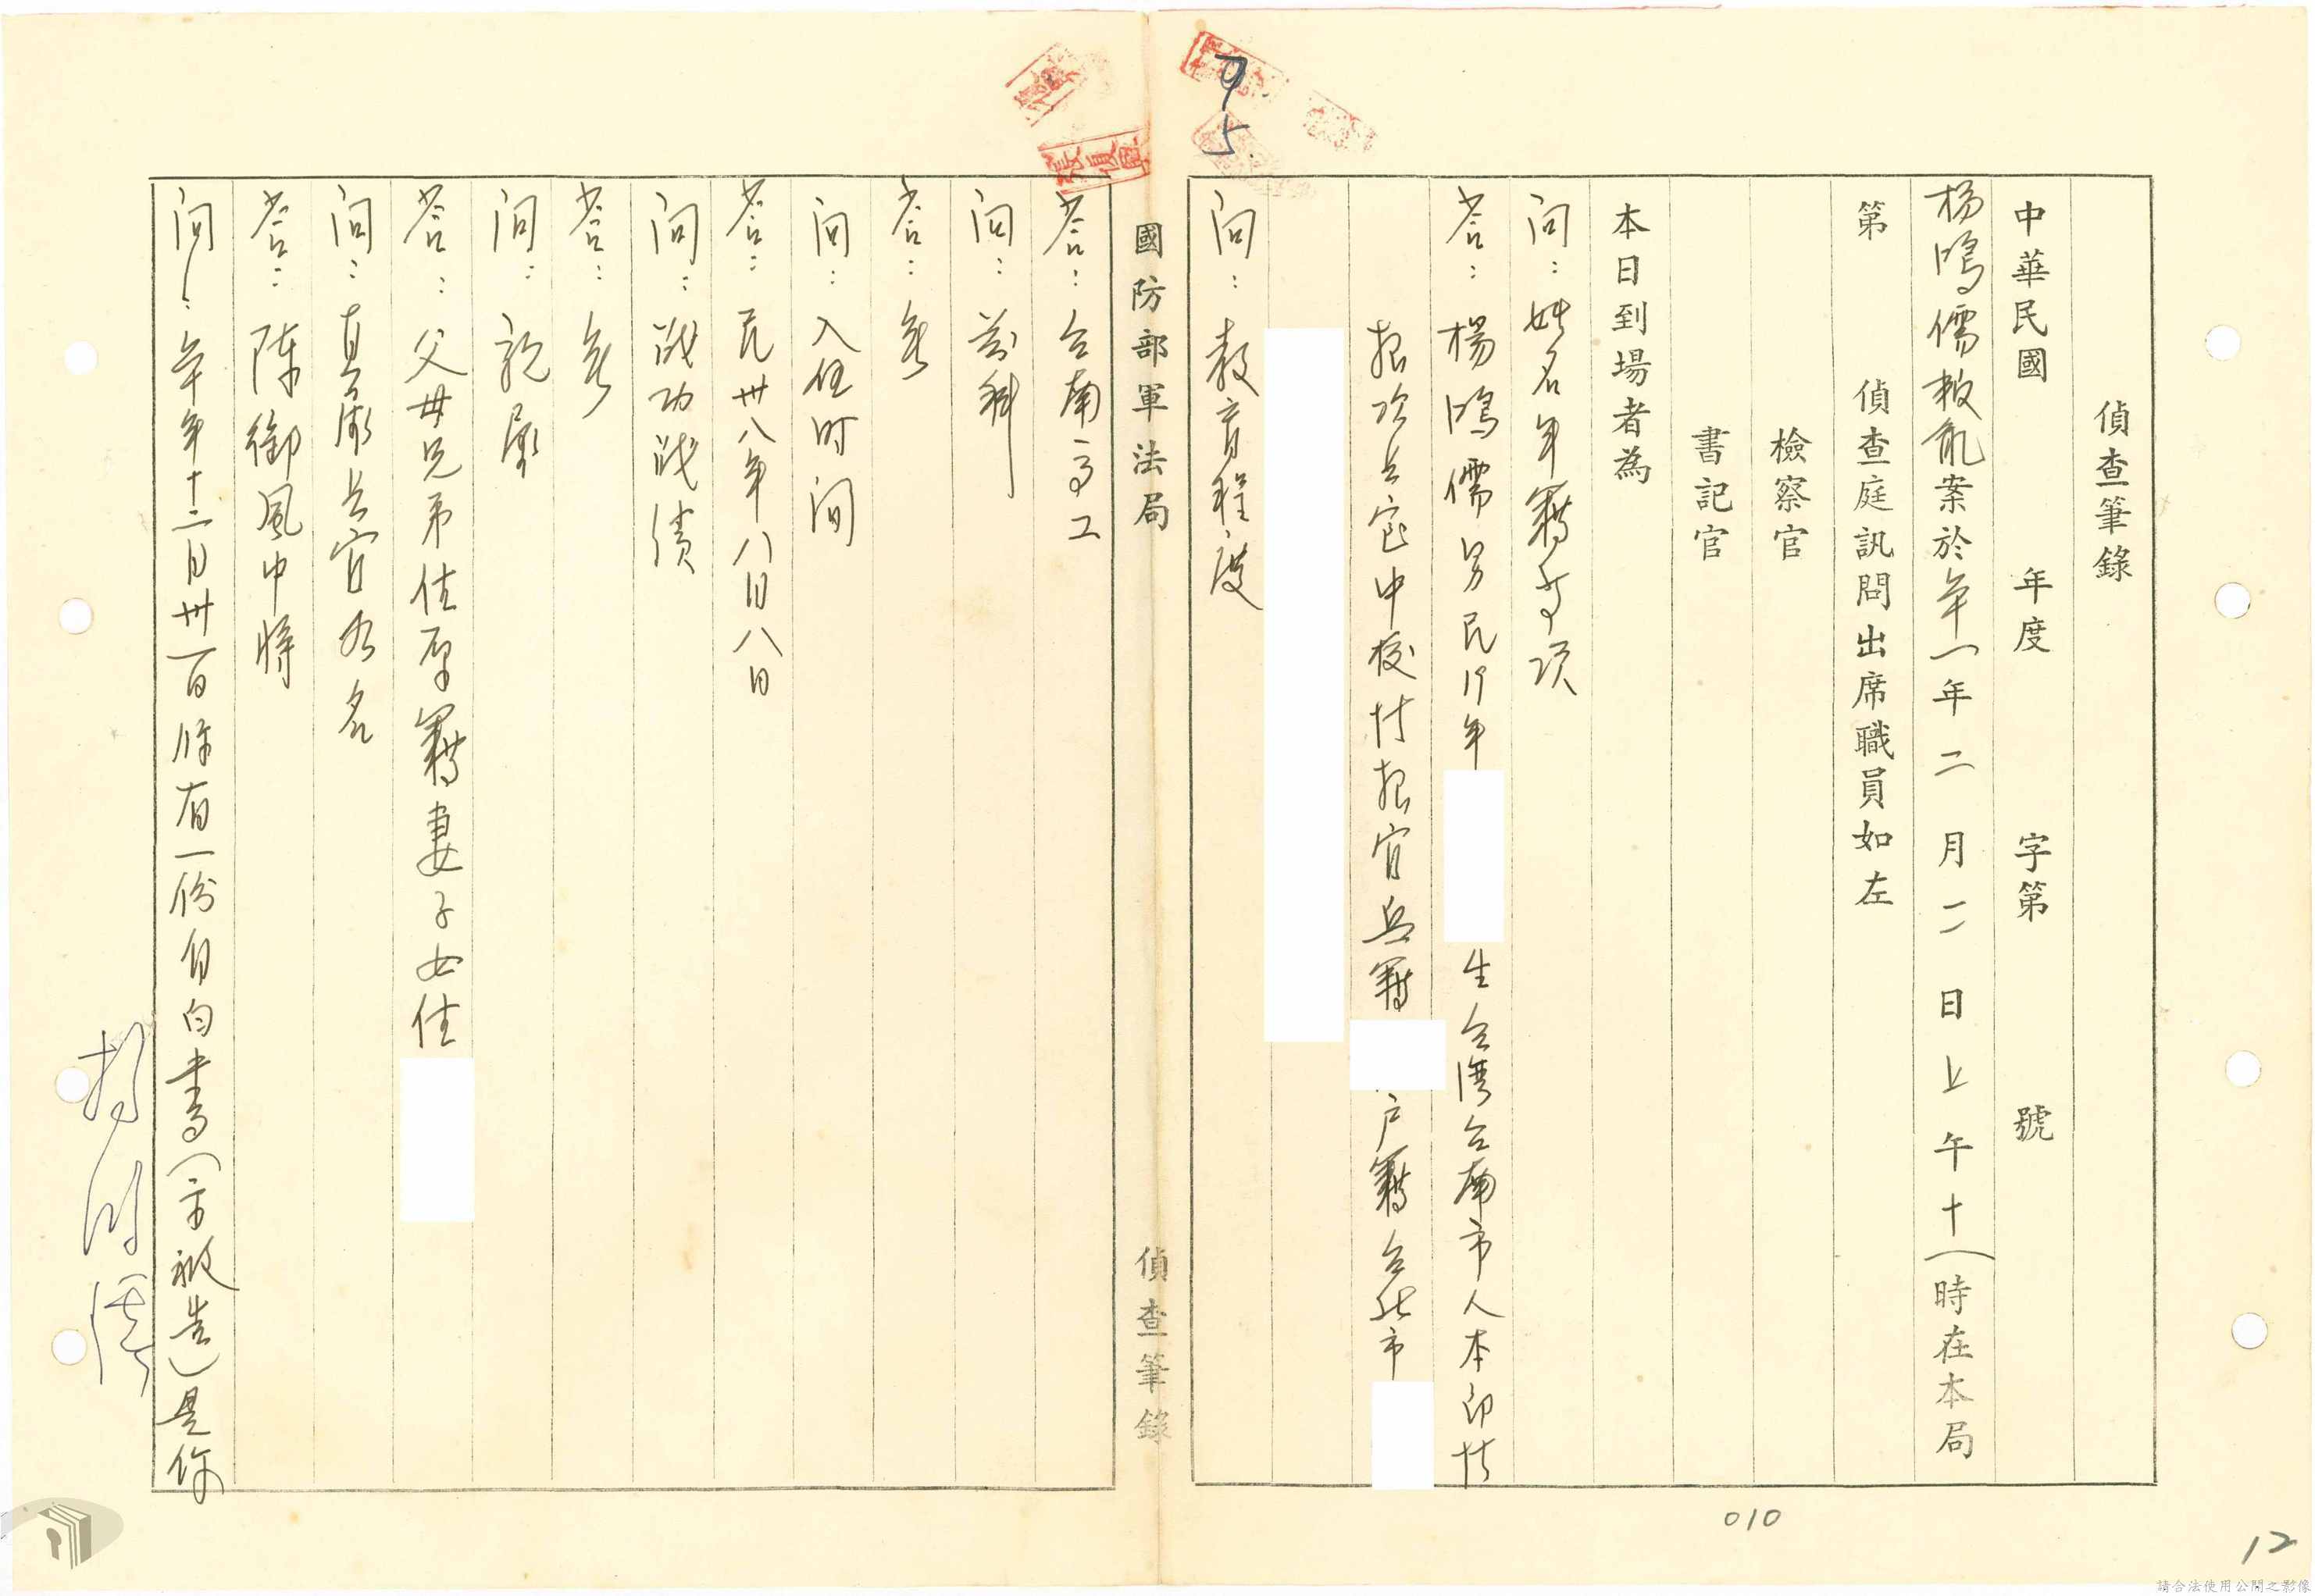 偵查筆錄
中華民國 年度 字第 號
楊鴻儒叛亂案於 年一年二月二日上午十時在本局
第 偵查庭訊問出席職員如左
檢察官
書記官
本日到場者為
问：姓名年籍等項
答：楊鴻儒男民19年 生台灣台南市人本印村
中校 官兵籍 户籍台北市
问：教育程度
國防部軍法局 偵查筆錄
答：台南高工
问：前科
答：無
问：入伍时间
答：民卅八年八月八日
问：战功战绩
答：無
问：親屬
答：父母兄弟住原籍妻子女住
问：直屬長官为名
答：陳御風中將
问：年十二月卅一日你有一份自白書（示被告）是你
楊鴻儒
95
010
12
請合法使用公開之影像